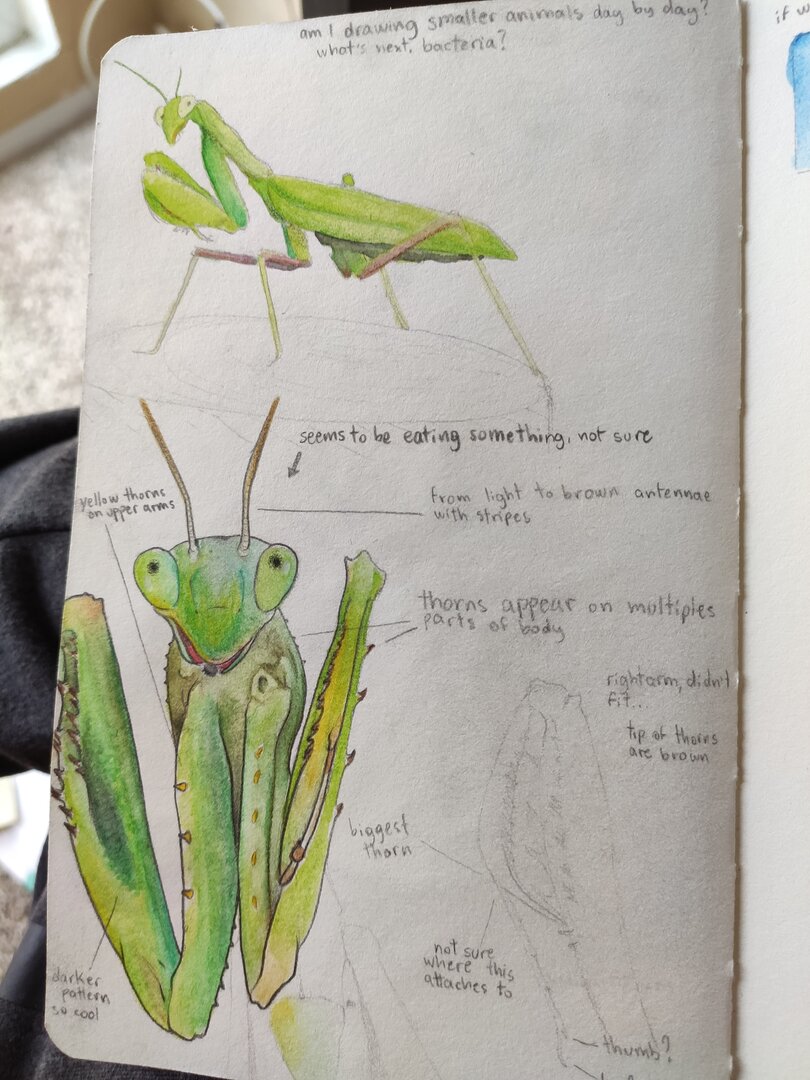 am I drawing smaller animals day by day?
what's next, bacteria?
if w
seems to be eating something, not sure
yellow thorns
on upper arms
from light to brown antennae
with stripes
thorns appear on multiples
parts of body
right arm, didn't
fit...
tip of thorns
are brown
biggest
thorn
not sure
where this
attaches to
darker
pattern
so cool
thumb?